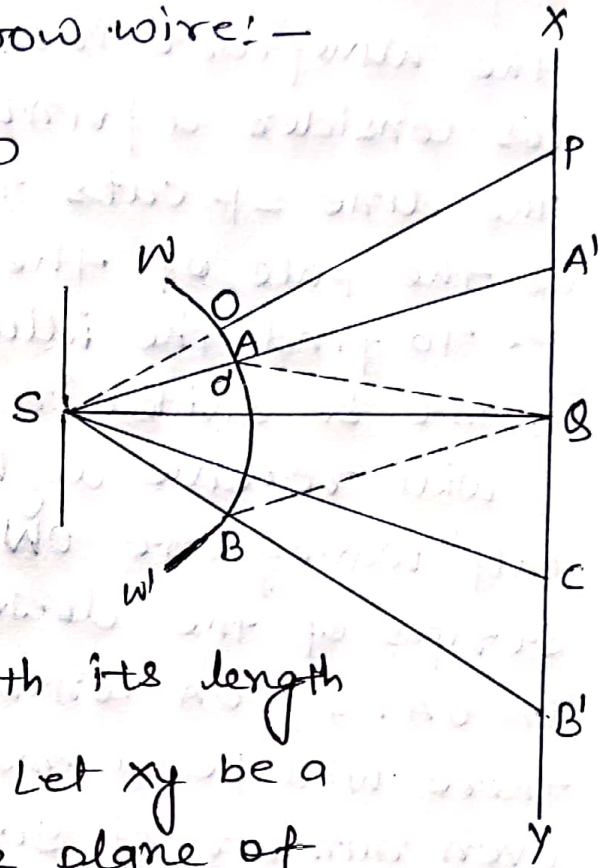 ow wire:-
X
P
W
A'
O
A
d
S
Q
B
C
W'
th its length
B'
Let xy be a
plane of
y